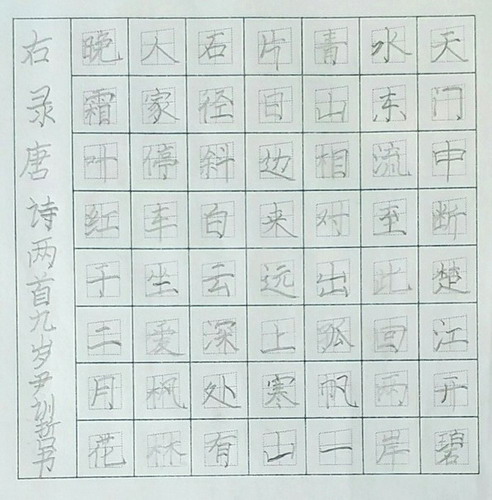 天门中断楚江开碧
水东流至此回两岸
青山相对出孤帆一
片日边来远上寒山
石径斜白云深处有
人家停车坐爱枫林
晚霜叶红于二月花
右录唐诗两首九岁尹训哲书